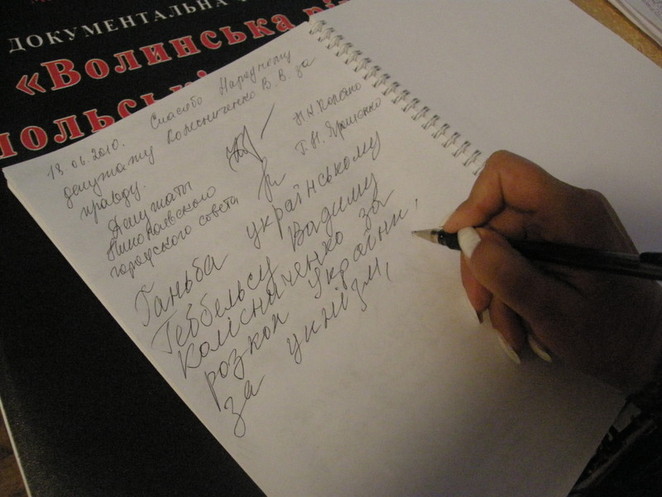 ДОКУМЕНТАЛЬНА
«Волинська рі
польськ
18.06.2010. Спасибо Народному
депутату Колесниченко В. В. за
правду.
Депутаты
Николаевского
городского совета
Г. Н. Яриненко
Ганьба українському
Геббельсу Вадиму
Колєсніченко за
розкол України,
за цинізм,